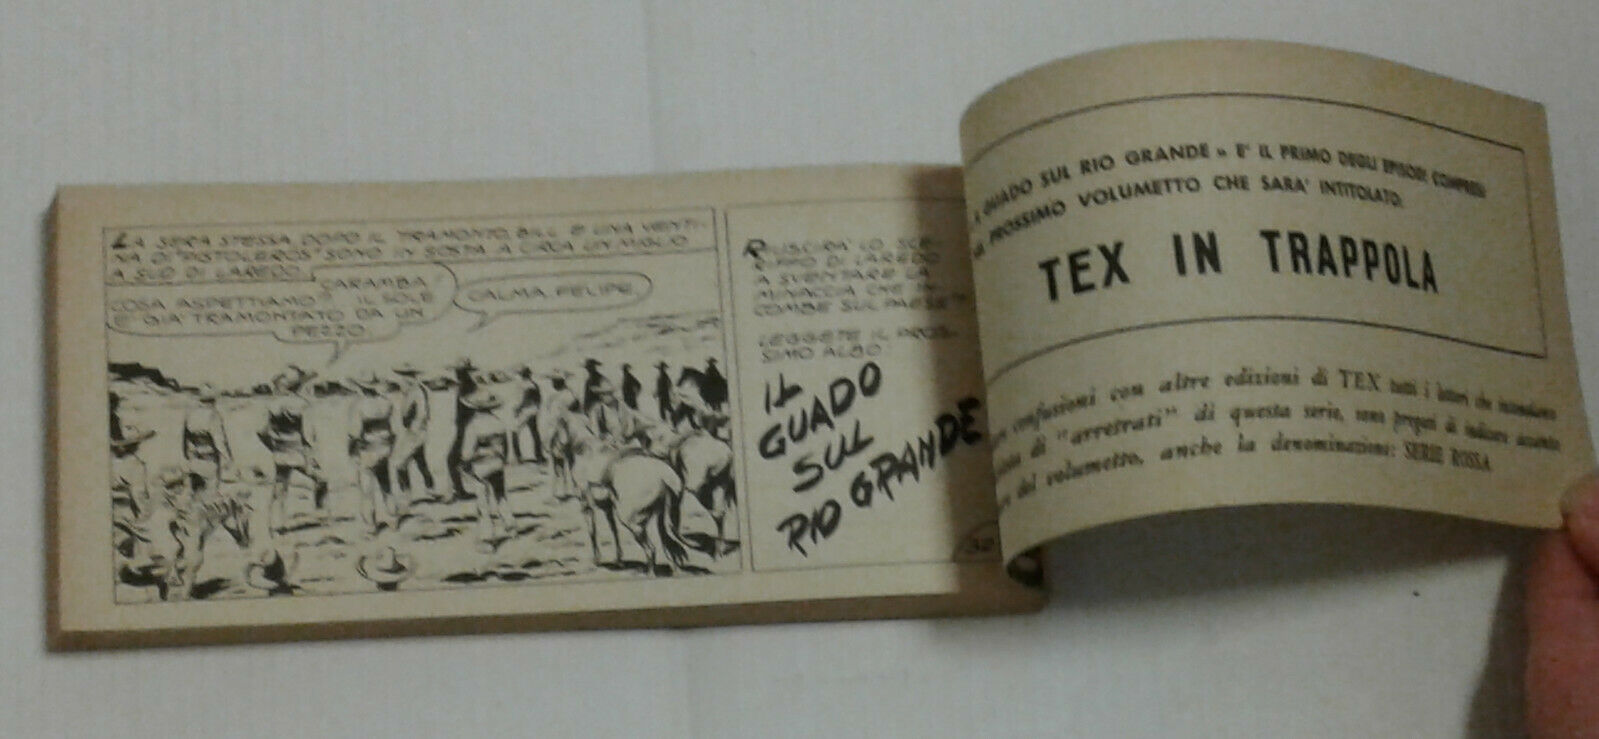 LA SERA STESSA, DOPO IL TRAMONTO, BILL E UNA VENTI-
NA DI "PISTOLEROS" SONO IN SOSTA A CIRCA UN MIGLIO
A SUD DI LAREDO.
CARAMBA!
COSA ASPETTIAMO? IL SOLE
E' GIA' TRAMONTATO DA UN
PEZZO.
CALMA, FELIPE.
RIUSCIRA' LO SCE-
RIFFO DI LAREDO
A SVENTARE LA
MINACCIA CHE IN-
COMBE SUL PAESE?
LEGGETE IL PROS-
SIMO ALBO:
IL
GUADO
SUL
RIO GRANDE
GUADO SUL RIO GRANDE» E' IL PRIMO DEGLI EPISODI COMPRESI
PROSSIMO VOLUMETTO CHE SARA' INTITOLATO:
TEX IN TRAPPOLA
confusioni con altre edizioni di TEX tutti i lettori che
di "arretrati" di questa serie, sono pregati di indicare accanto
del volumetto, anche la denominazione: SERIE ROSSA